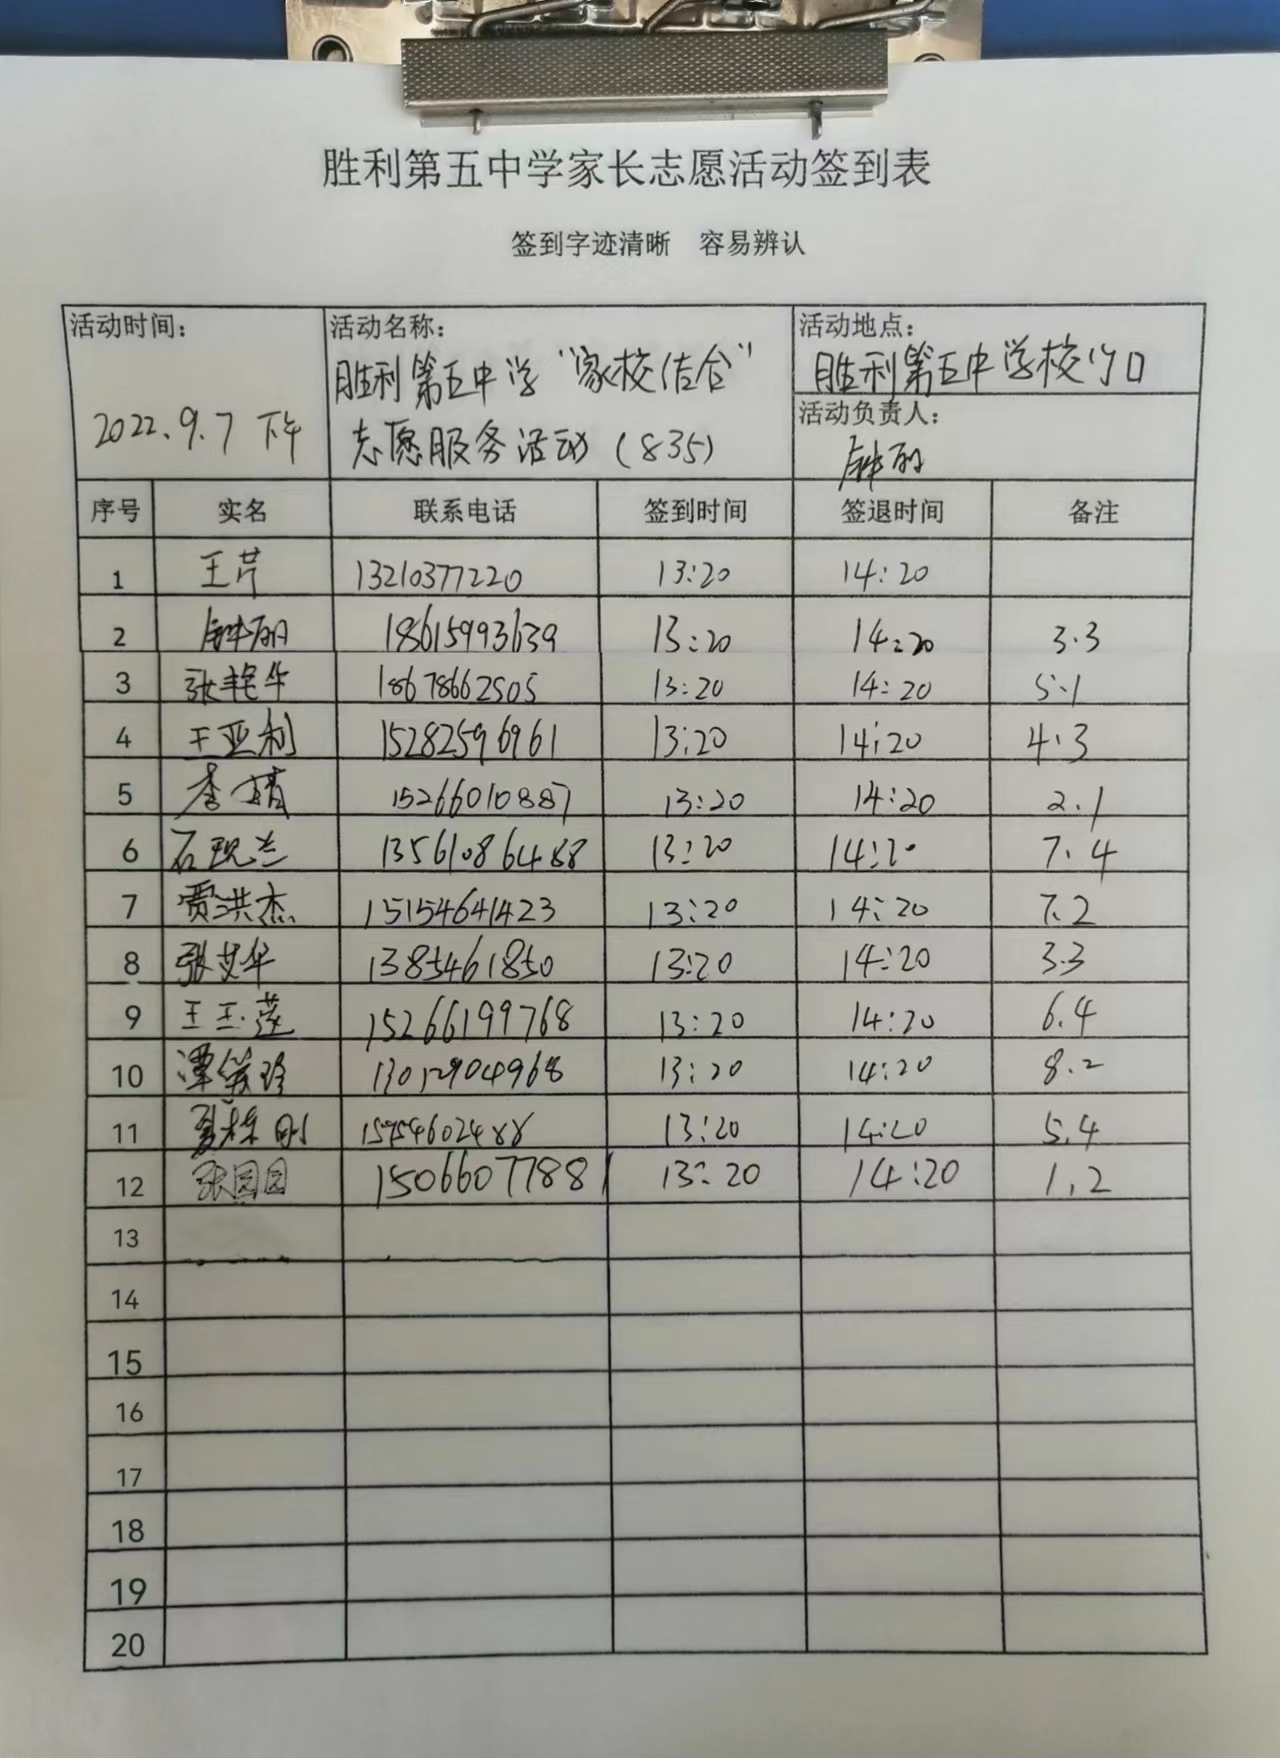 胜利第五中学家长志愿活动签到表
签到字迹清晰 容易辨认
活动时间: 活动名称: 活动地点:
胜利第五中学“家校结合” 胜利第五中学校门口
2022.9.7 下午 志愿服务活动(835) 活动负责人:
钟丽
序号 实名 联系电话 签到时间 签退时间 备注
1 王芹 13210377220 13:20 14:20
2 钟丽 18615993639 13:20 14:20 3.3
3 张艳华 18678662505 13:20 14:20 5.1
4 王亚利 15282596961 13:20 14:20 4.3
5 李婧 15266010887 13:20 14:20 2.1
6 石现兰 13561086488 13:20 14:20 7.4
7 贾洪杰 15154641423 13:20 14:20 7.2
8 张艾华 1385461850 13:20 14:20 3.3
9 王玉莲 15266199768 13:20 14:20 6.4
10 谭 13:20 14:20 8.2
11 13:20 14:20 5.4
12 张园园 15066077881 13:20 14:20 1.2
13
14
15
16
17
18
19
20